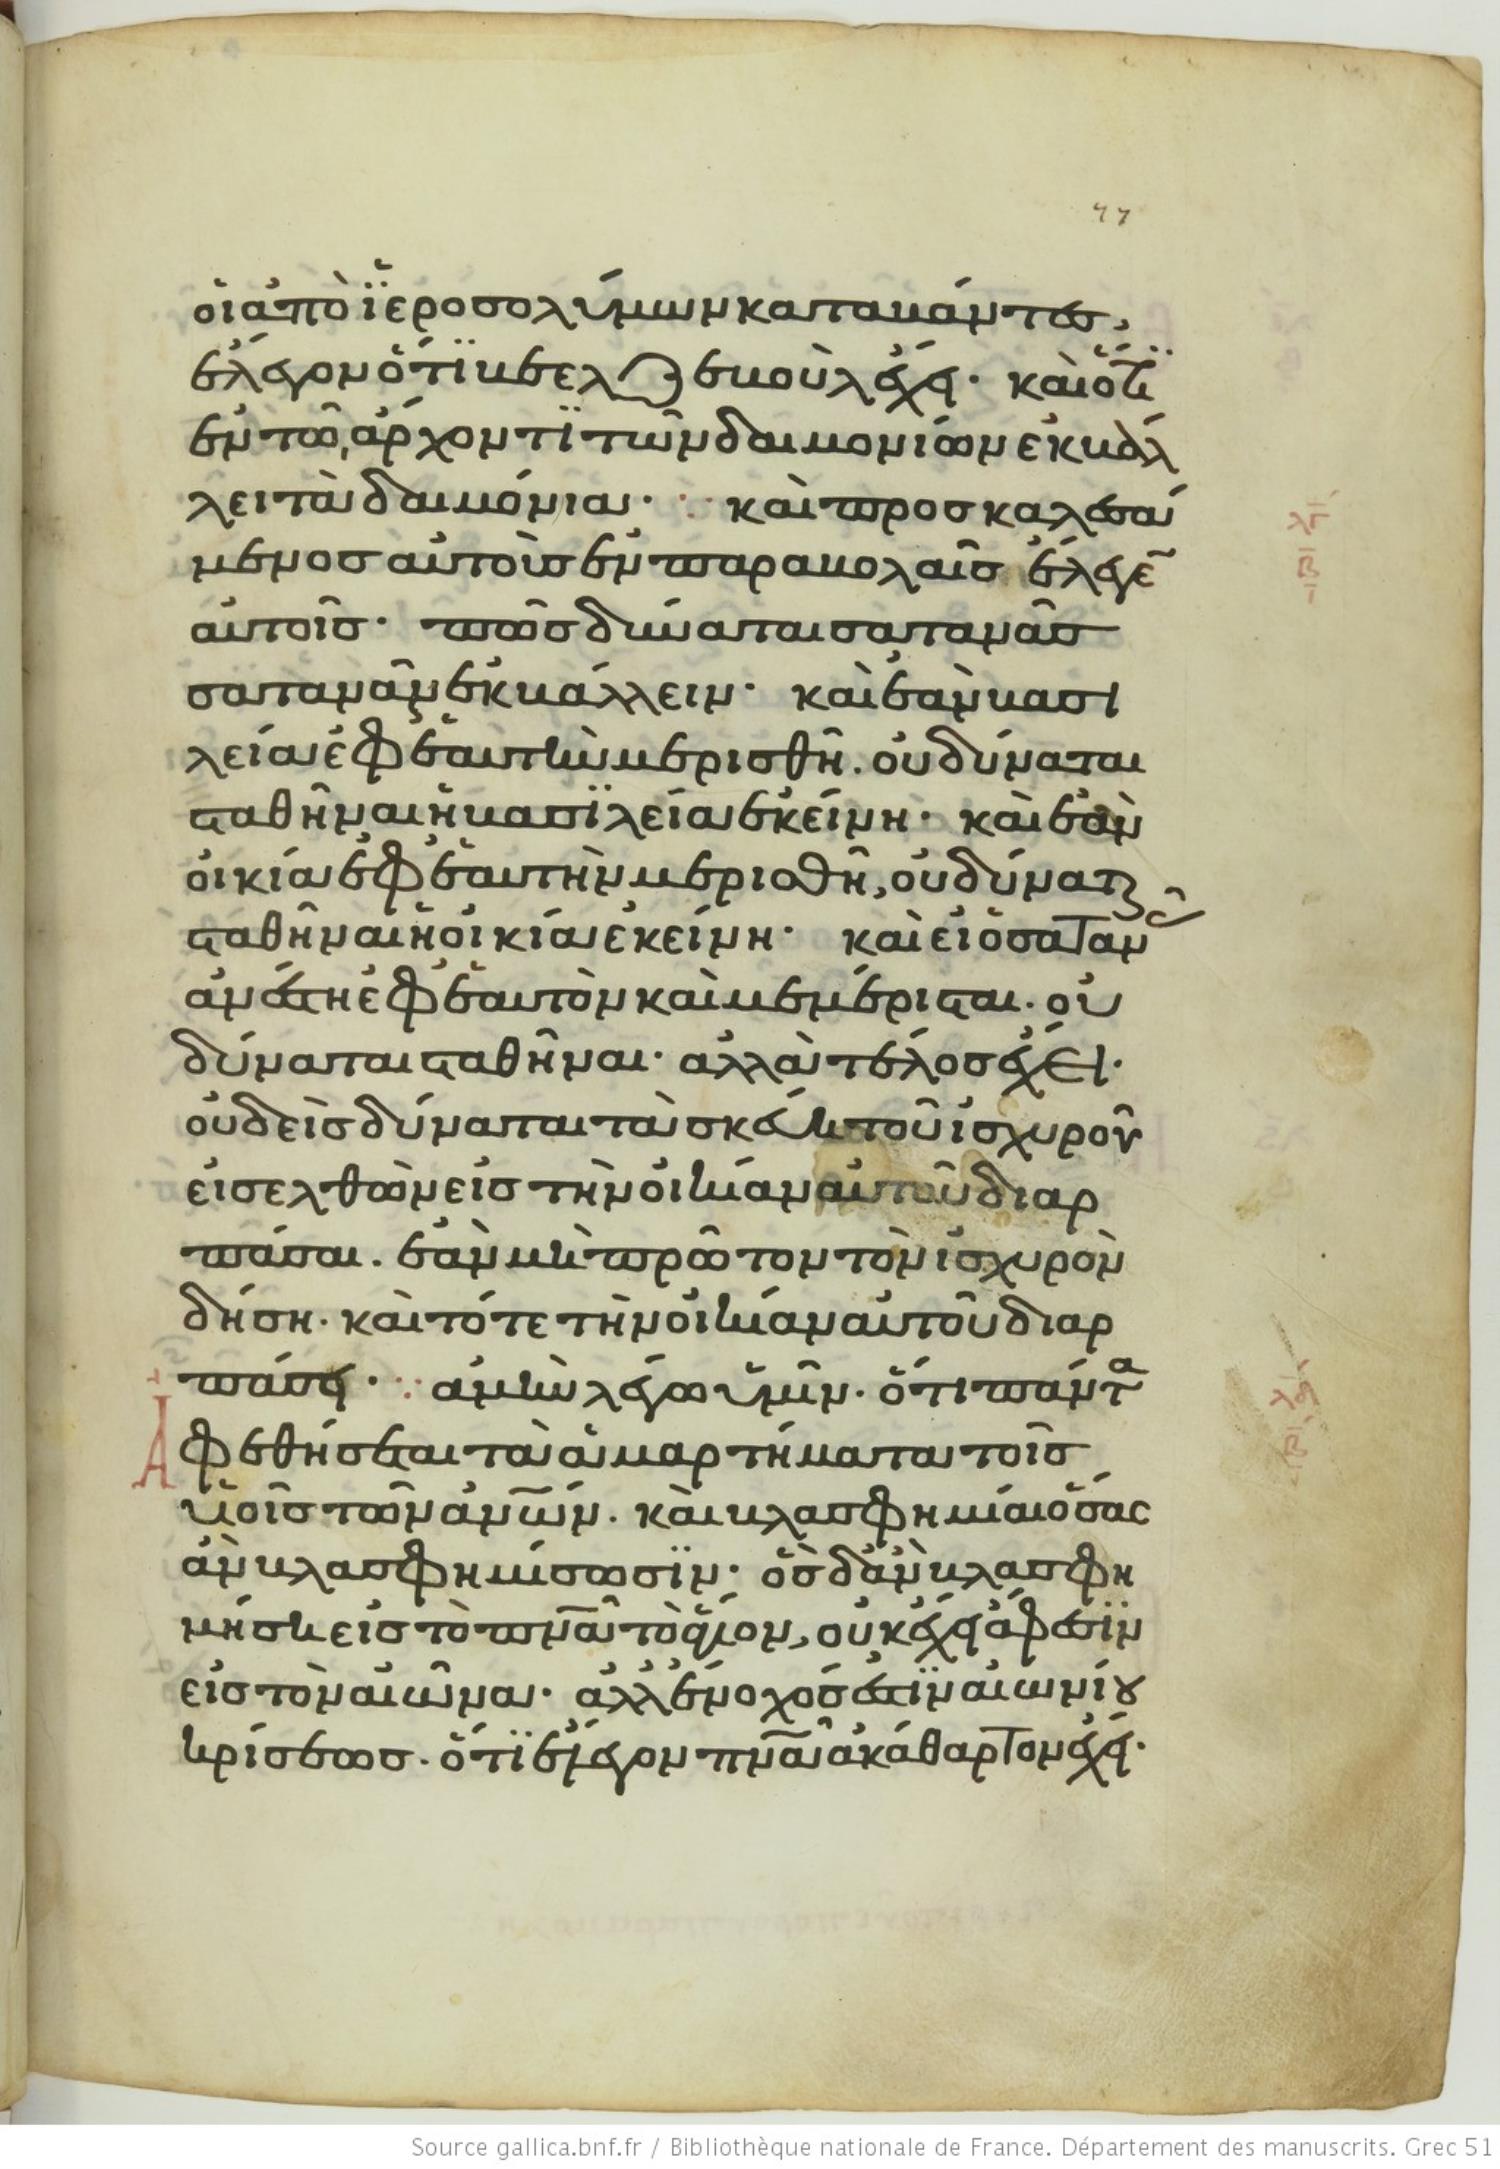 77
οἱ ἀπὸ ἱεροσολύμων καταβάντες,
ἔλεγον ὅτι βεελζεβοὺλ ἔχει· καὶ ὅτι
ἐν τῶ ἄρχοντι τῶν δαιμονίων ἐκβάλ
λει τὰ δαιμόνια· καὶ προσκαλεσά
μενος αὐτοὺς ἐν παραβολαῖς ἔλεγε
αὐτοῖς· πῶς δύναται σατανᾶς
σατανᾶν ἐκβάλλειν· καὶ ἐὰν βασι
λεία ἐφ ἑαυτὴν μερισθῆ. οὐ δύναται
σταθῆναι ἡ βασιλεία ἐκείνη· καὶ ἐὰν
οἰκία ἐφ ἑαυτὴν μερισθῆ, οὐ δύναται
σταθῆναι ἡ οἰκία ἐκείνη· καὶ εἰ ὁ σατανᾶς
ἀνέστη ἐφ ἑαυτὸν καὶ μεμέρισται. οὐ
δύναται σταθῆναι· ἀλλὰ τέλος ἔχει·
οὐδεὶς δύναται τὰ σκεύη τοῦ ἰσχυροῦ
εἰσελθὼν εἰς τὴν οἰκίαν αὐτοῦ διαρ
πάσαι. ἐὰν μὴ πρῶτον τὸν ἰσχυρὸν
δήση. καὶ τότε τὴν οἰκίαν αὐτοῦ διαρ
πάσει· ἀμὴν λέγω ὑμῖν. ὅτι πάντα
Ἀφεθήσεται τὰ ἁμαρτήματα τοῖς
υἱοῖς τῶν ἀνῶν. καὶ βλασφημίαι ὅσας
ἀν βλασφημίσωσιν· ὃς δἀν βλασφη
μήση εἰς τὸ πνα τὸ ἅγιον, οὐκ ἔχει ἄφεσιν
εἰς τὸν αἰῶνα· ἀλλ ἔνοχος ἐστὶν αἰωνίου
κρίσεως. ὅτι ἔλεγον πνα ἀκάθαρτον ἔχει·
Source gallica.bnf.fr / Bibliothèque nationale de France. Département des manuscrits. Grec 51